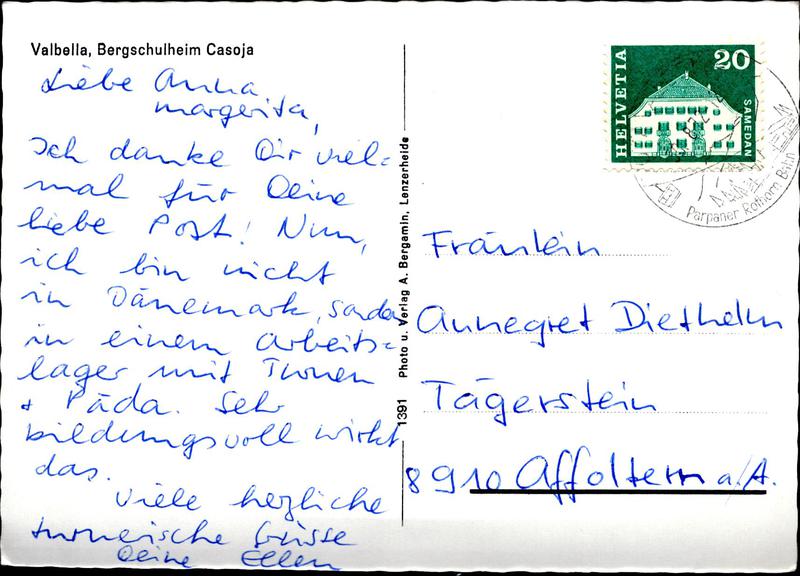 Valbella, Bergschulheim Casoja
Liebe Anna
margerita,
Ich danke Dir viel-
mal für Deine
liebe Post! Nun,
ich bin nicht
in Dänemark, sondern
in einem Arbeits-
lager mit Turnen
+ Päda. Sehr
bildungsvoll wirkt
das.
Viele herzliche
turnerische Grüsse
Deine Ellen
1391 Photo u. Verlag A. Bergamin, Lenzerheide
HELVETIA
20
SAMEDAN
Parpaner Rothorn Bahn
Fräulein
Annegret Diethelm
Tägerstein
8910 Affoltern a/A.